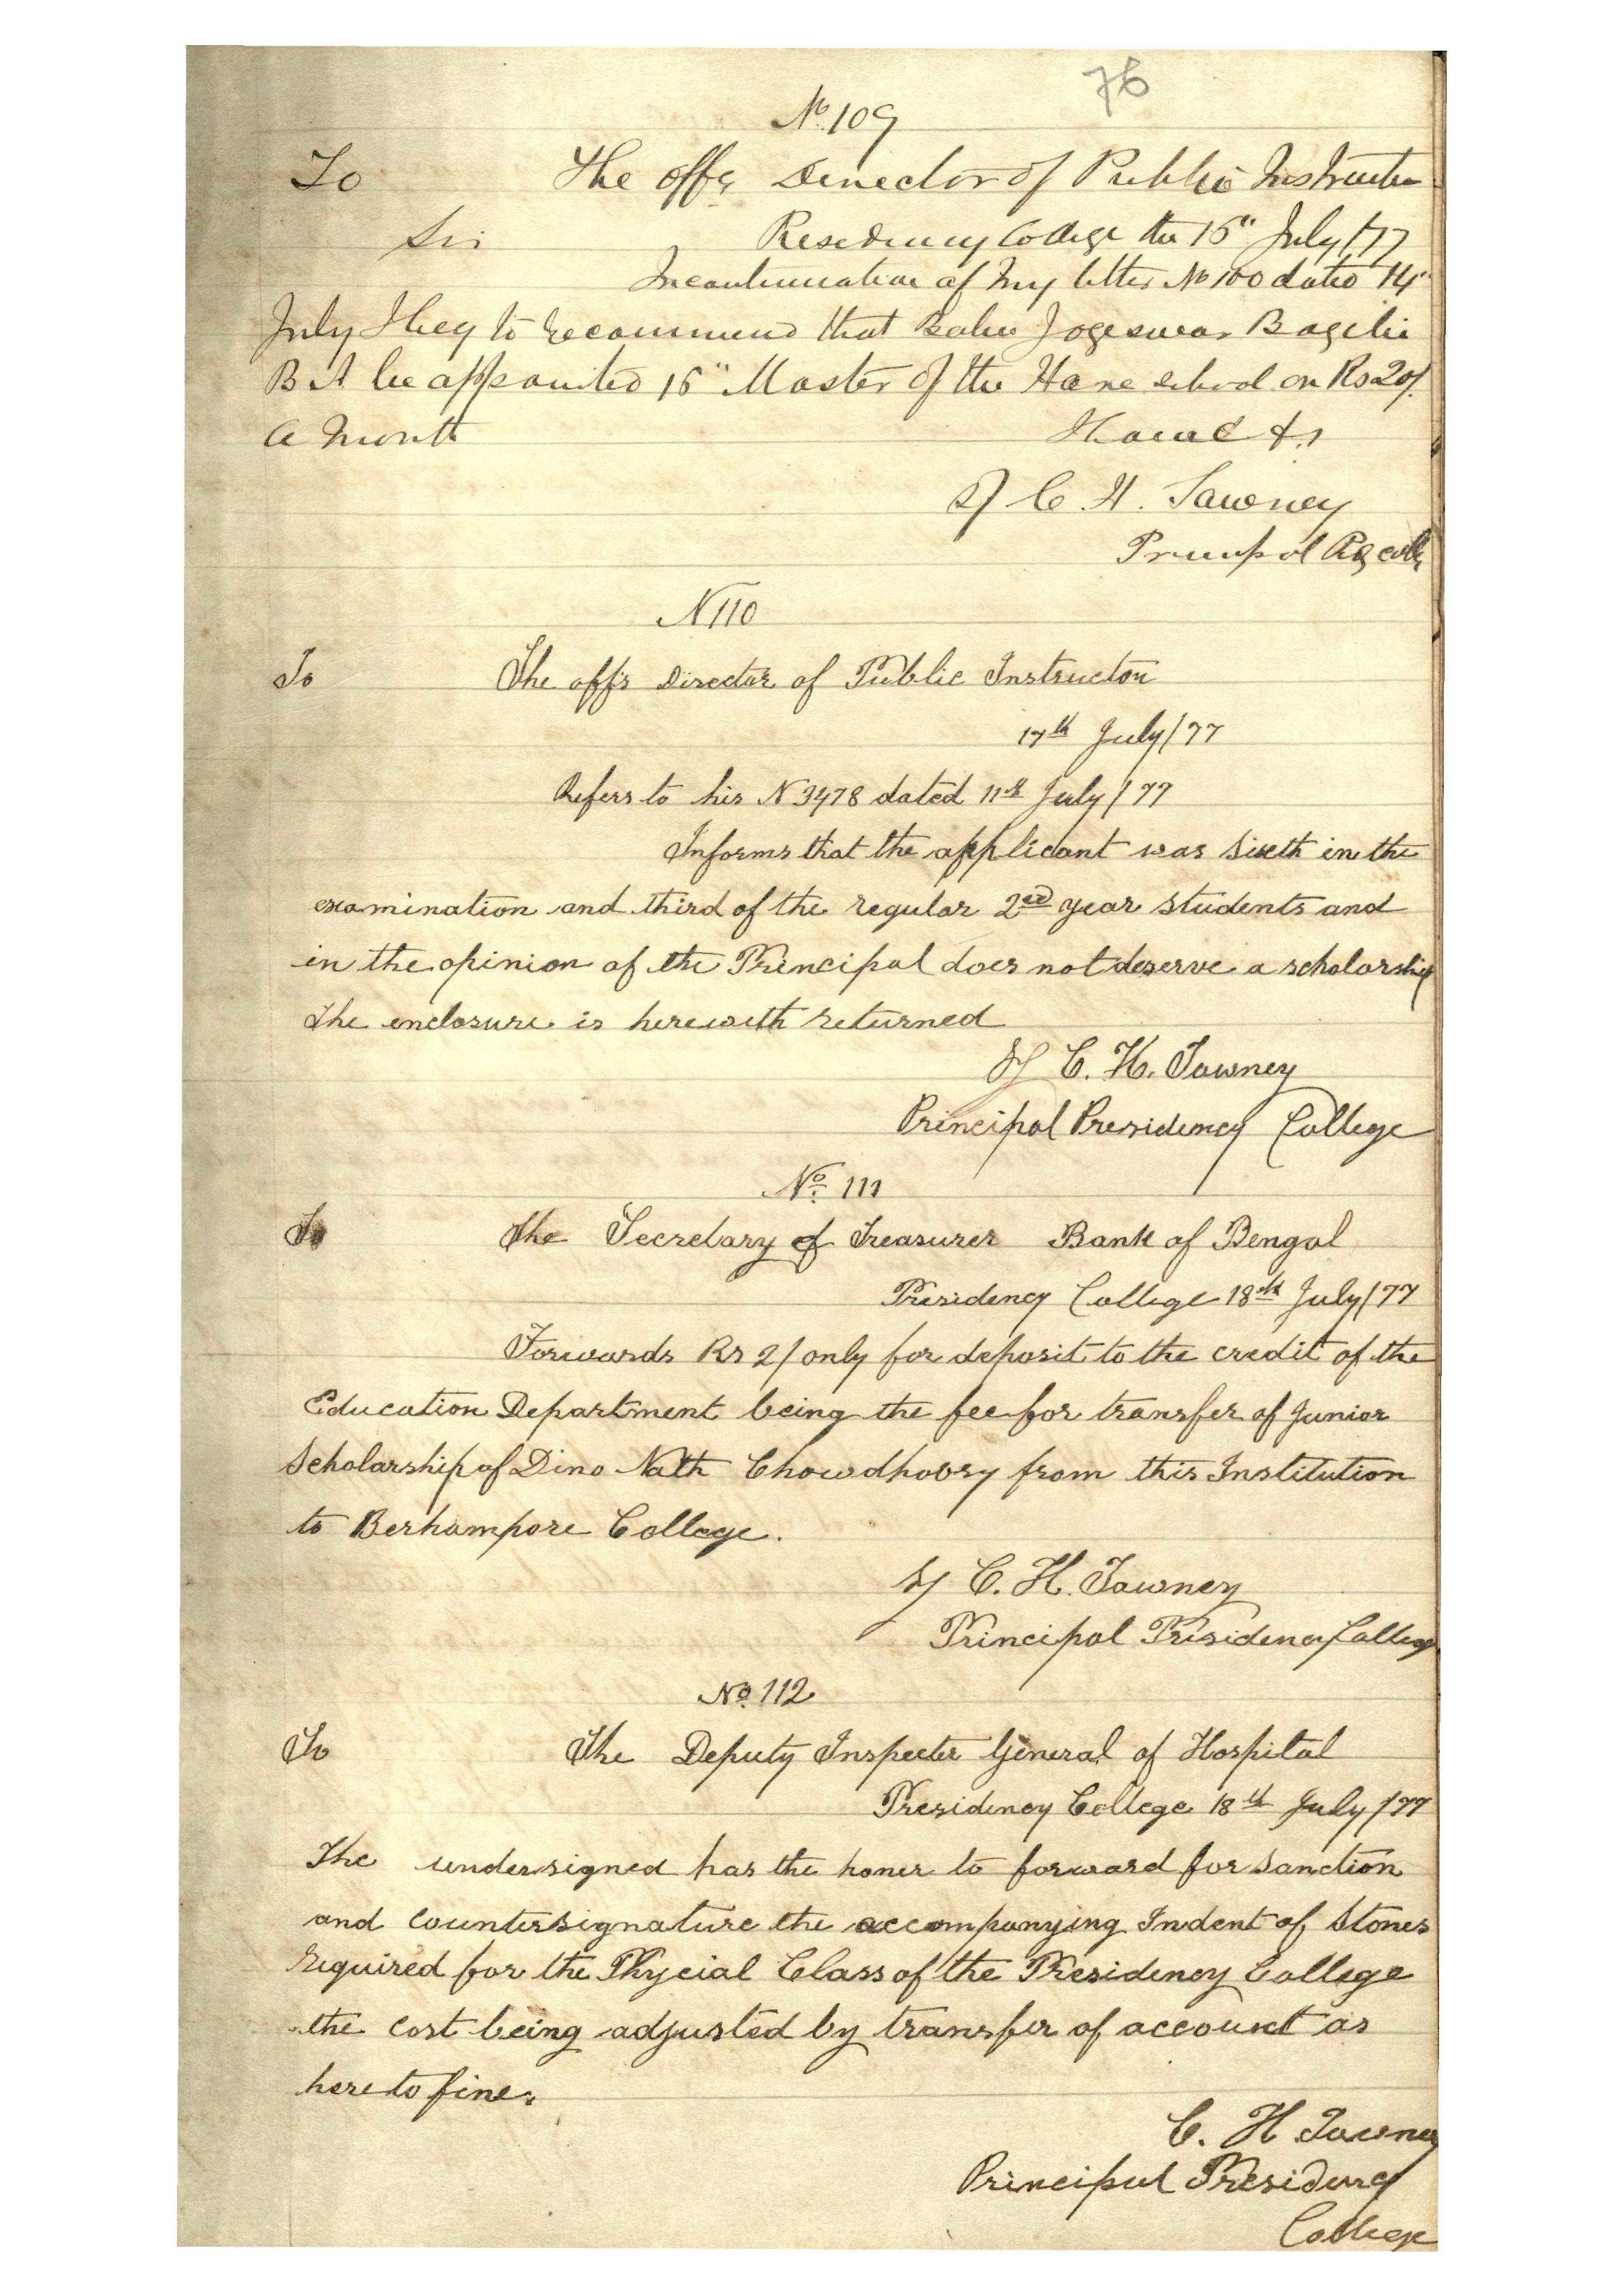 76
No. 109
To The offg Director of Public Instruction
Sir Presidency College the 16" July/77
In continuation of my letter No 100 dated 14"
July I beg to recommend that Babu Jogeswar
B A be appointed 15" Master of the Hare school on Rs 20/.
a month I have &c
Sd C. H. Tawney
Principal College
N 110
To The offg Director of Public Instruction
17th July/77
Refers to his N 3478 dated 11th July/77
Informs that the applicant was Sixth in the
examination and third of the regular 2nd year students and
in the opinion of the Principal does not deserve a scholarship
The enclosure is herewith returned
Sd C. H. Tawney
Principal Presidency College
No. 111
To The Secretary & Treasurer Bank of Bengal
Presidency College 18th July/77
Forwards Rs 2/ only for deposit to the credit of the
Education Department being the fee for transfer of Junior
Scholarship of Dino Nath Chowdhoory from this Institution
to Berhampore College.
Sd C. H. Tawney
Principal Presidency College
No. 112
To The Deputy Inspector General of Hospital
Presidency College 18th July/77
The undersigned has the honor to forward for sanction
and countersignature the accompanying Indent of Stores
required for the Phycial Class of the Presidency College
the cost being adjusted by transfer of account as
heretofine.
C. H Tawney
Principal Presidency
College